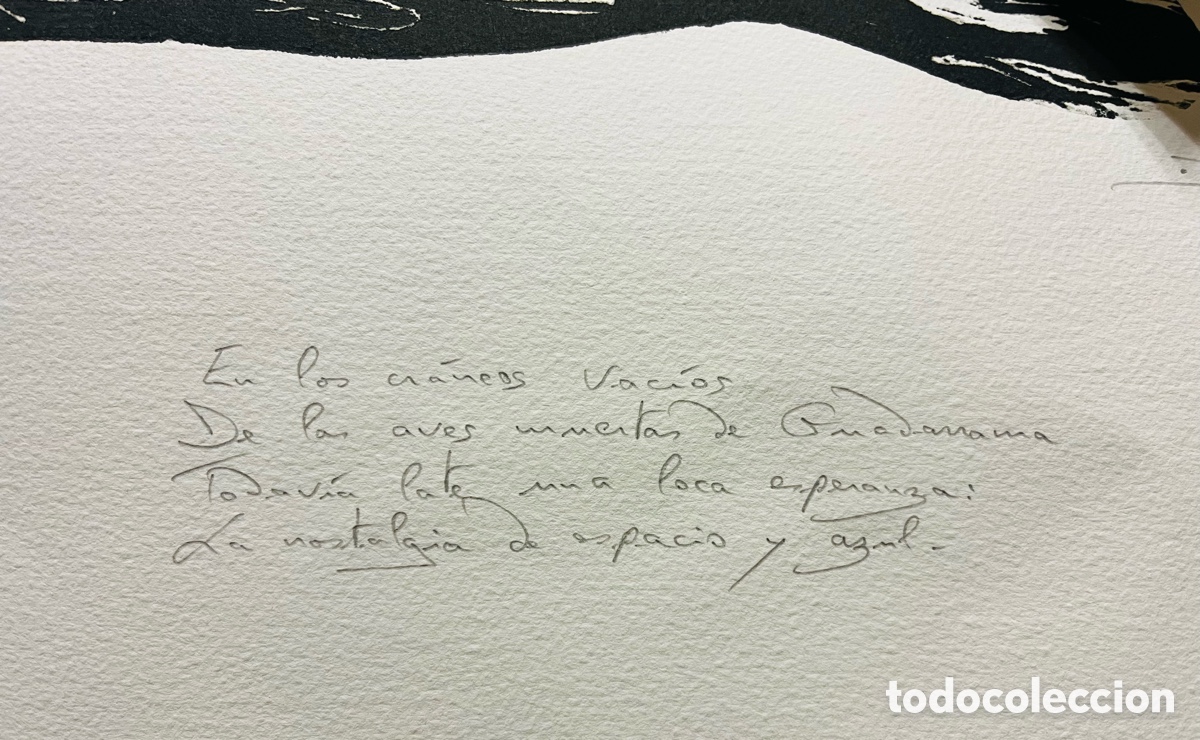 En los cráneos vacíos
De las aves muertas de Guadarrama
Todavía late una loca esperanza:
La nostalgia de espacio y azul.
todocoleccion